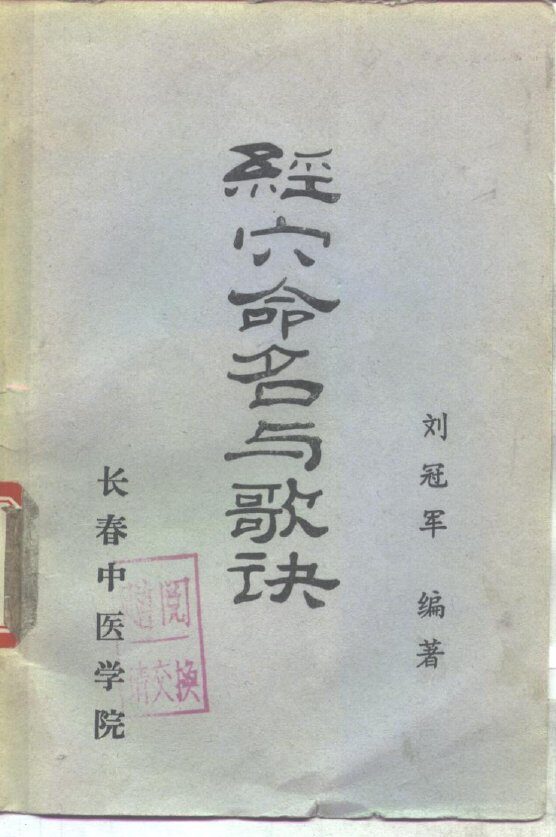 刘冠军 编著
經穴命名与歌诀
长春中医学院
赠阅
请交换